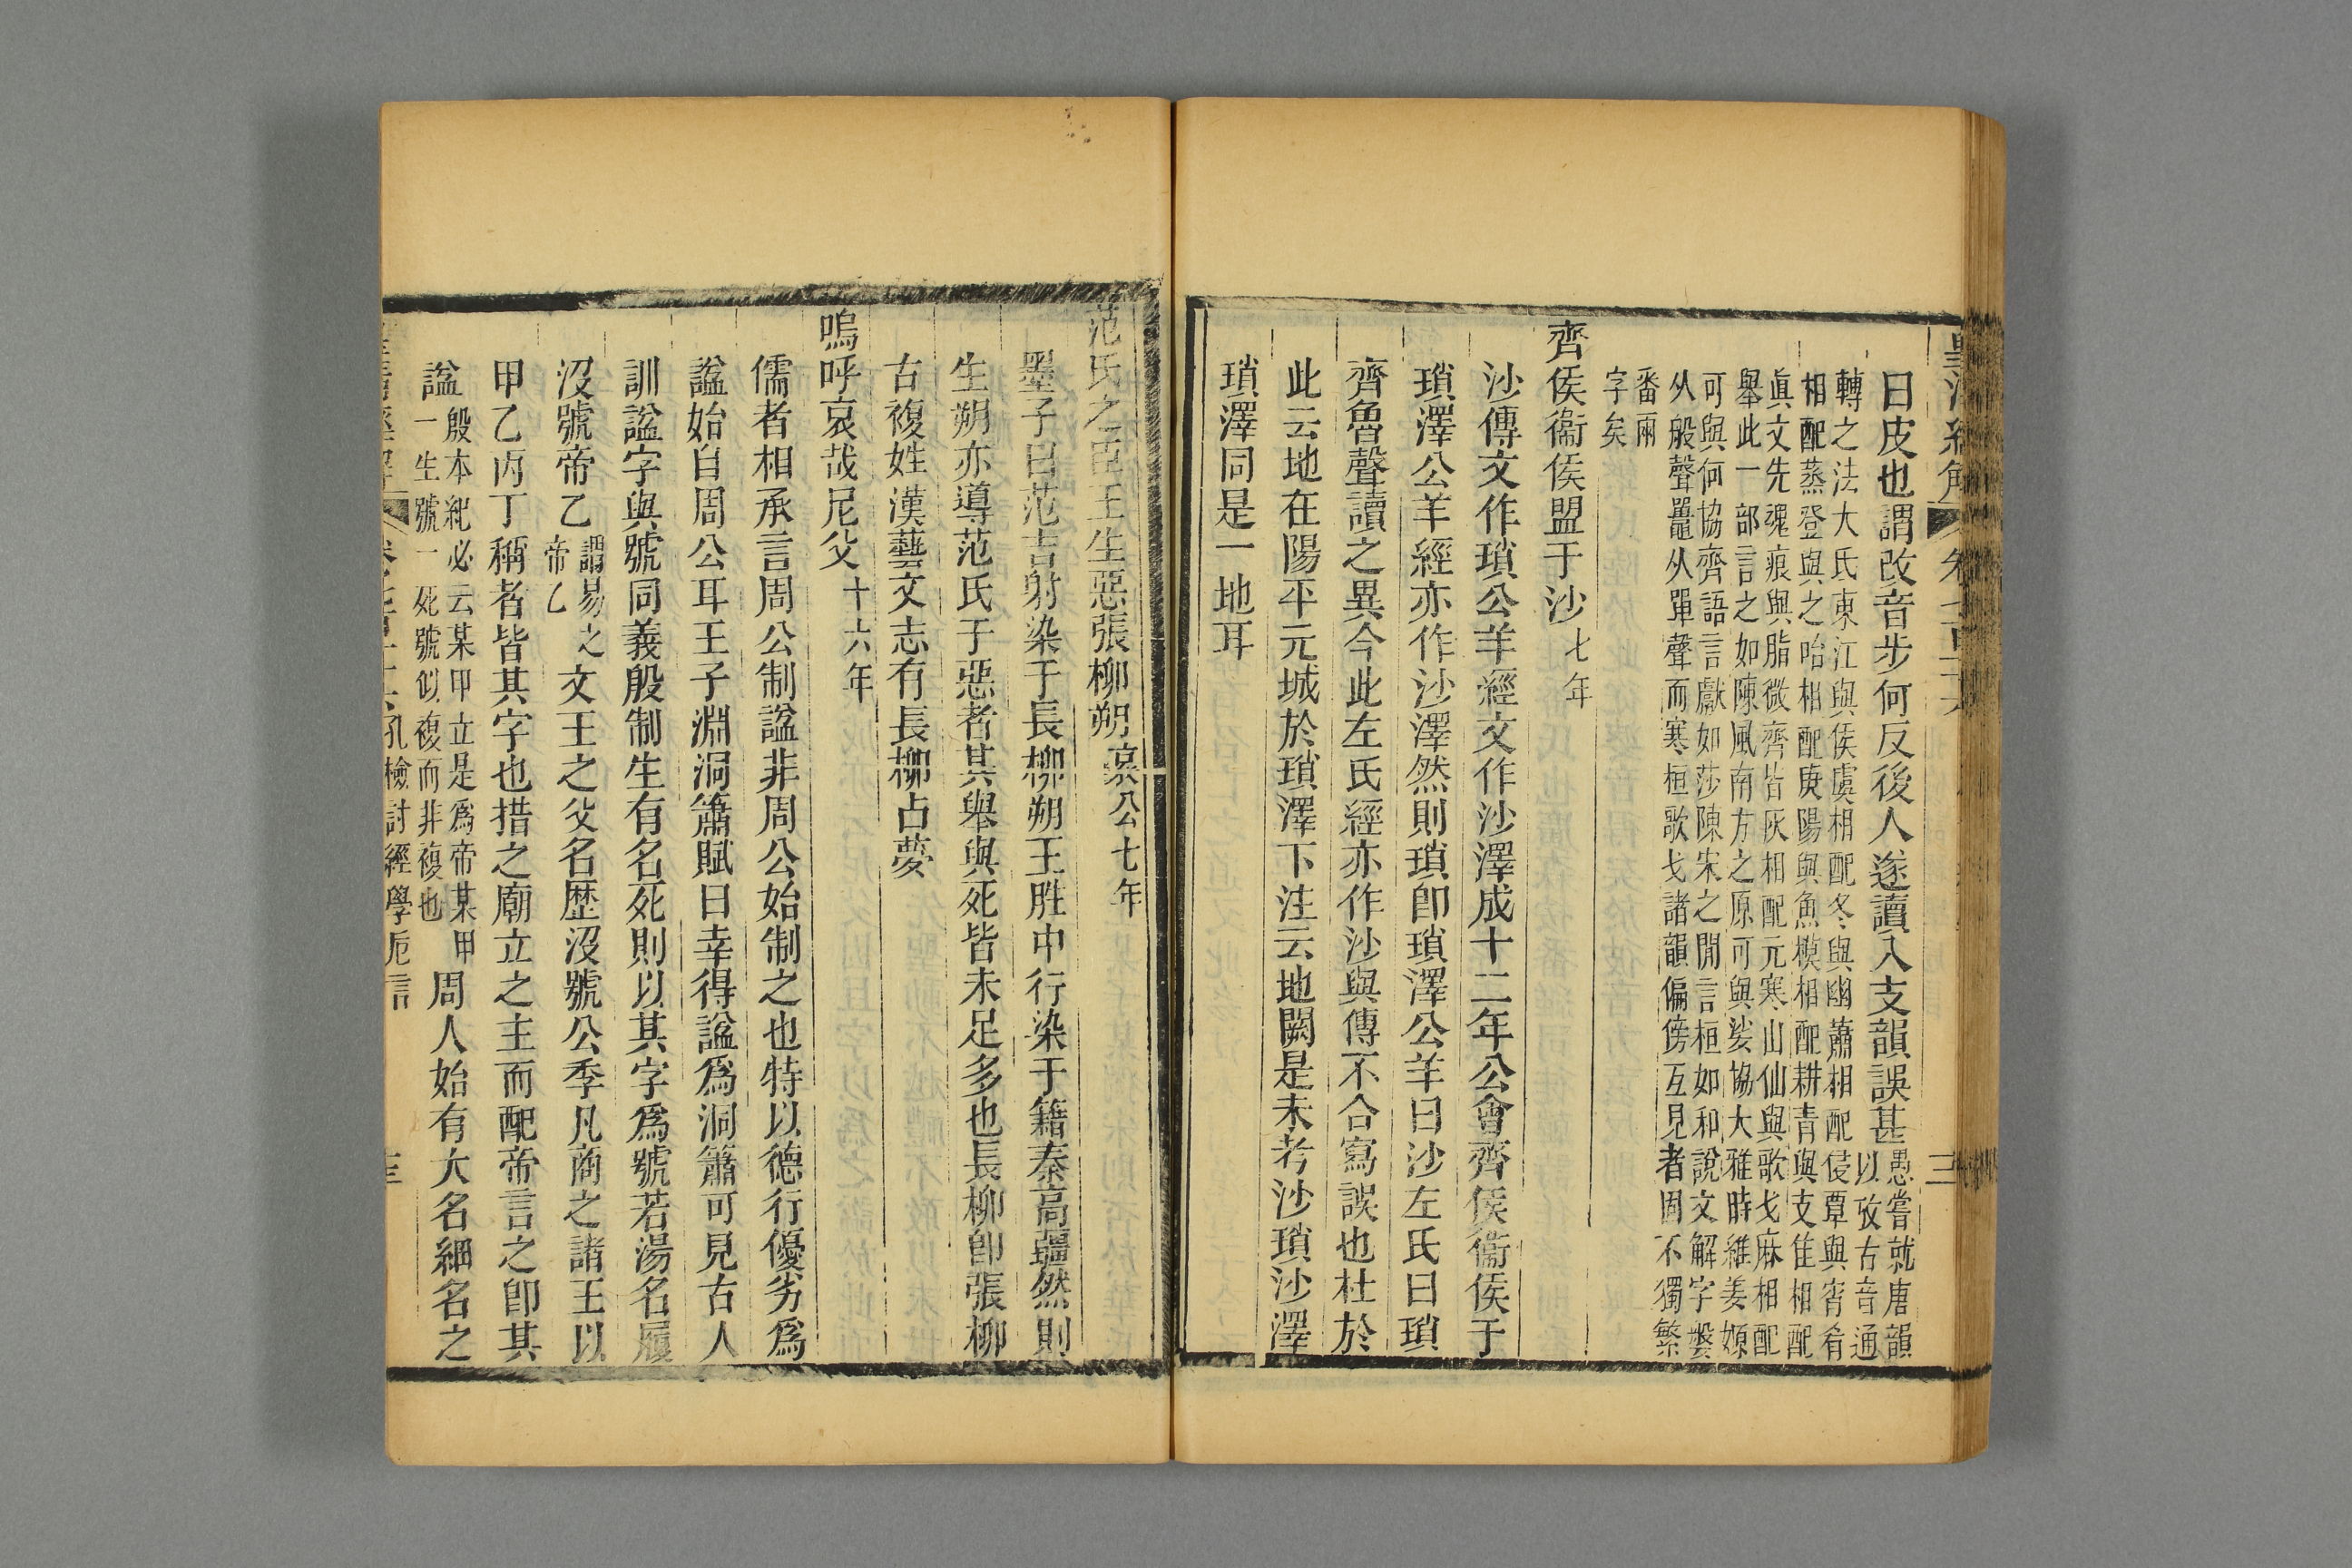 曰皮也謂改音步何反後人遂讀入支韻誤甚愚嘗就唐韻以攷古音通
轉之法大氐東江與侯虞相配冬與幽蕭相配侵覃與宵肴
相配蒸登與之咍相配庚陽與魚模相配耕青與支佳相配
眞文先魂痕與脂微齊皆灰相配元寒山仙與歌戈麻相配
舉此一部言之如陳風南方之原可與娑協大雅時維姜嫄
可與何協齊語言獻如莎陳宋之閒言桓如和說文解字媻
从般聲鼉从單聲而寒桓歌戈諸韻偏傍互見者固不獨繁
番兩
字矣
齊侯衞侯盟于沙七年
沙傳文作瑣公羊經文作沙澤成十二年公會齊侯衞侯于
瑣澤公羊經亦作沙澤然則瑣卽瑣澤公羊曰沙左氏曰瑣
齊魯聲讀之異今此左氏經亦作沙與傳不合寫誤也杜於
此云地在陽平元城於瑣澤下注云地闕是未考沙瑣沙澤
瑣澤同是一地耳
范氏之臣王生惡張柳朔哀公七年
墨子曰范吉射染于長柳朔王胜中行染于籍秦高彊然則
生朔亦導范氏于惡者其舉與死皆未足多也長柳卽張柳
古複姓漢藝文志有長柳占夢
嗚呼哀哉尼父十六年
儒者相承言周公制諡非周公始制之也特以德行優劣爲
諡始自周公耳王子淵洞簫賦曰幸得諡爲洞簫可見古人
訓諡字與號同義殷制生有名死則以其字爲號若湯名履
沒號帝乙謂易之帝乙文王之父名歷沒號公季凡商之諸王以
甲乙丙丁稱者皆其字也措之廟立之主而配帝言之卽其
諡殷本紀必云某甲立是爲帝某甲一生號一死號似複而非複也周人始有大名細名之
孔檢討經學卮言